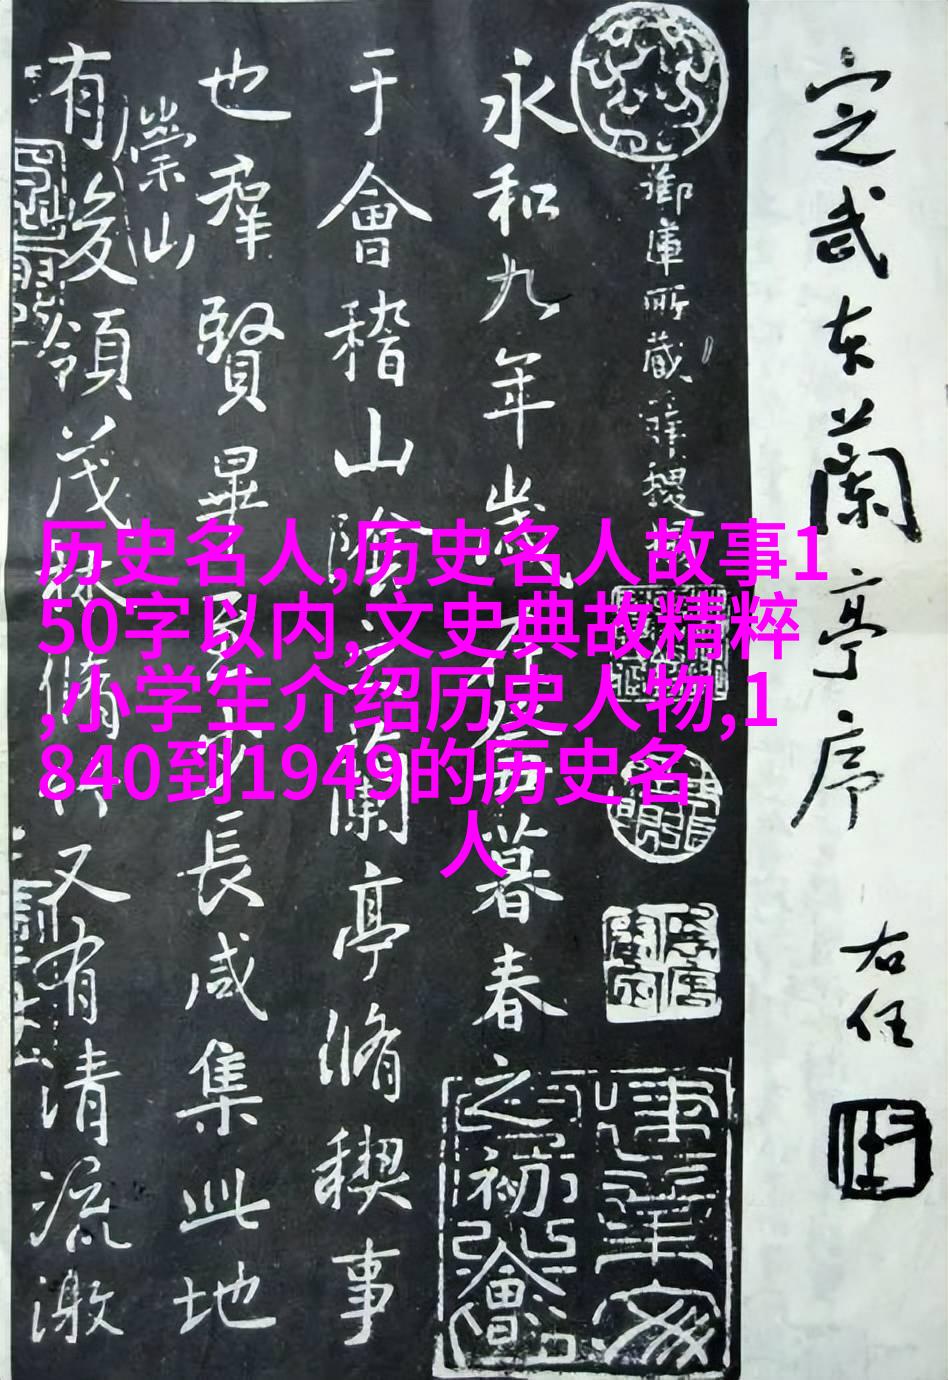 定武本蘭亭序
右任
御庫所藏
永和九年歲在癸丑暮春之初會
于會稽山陰之蘭亭脩稧事
也羣賢畢至少長咸集此地
有峻領茂林脩竹又有清流激
崇山
历史名人,历史名人故事1
50字以内,文史典故精粹
,小学生介绍历史人物,1
840到1949的历史名
人